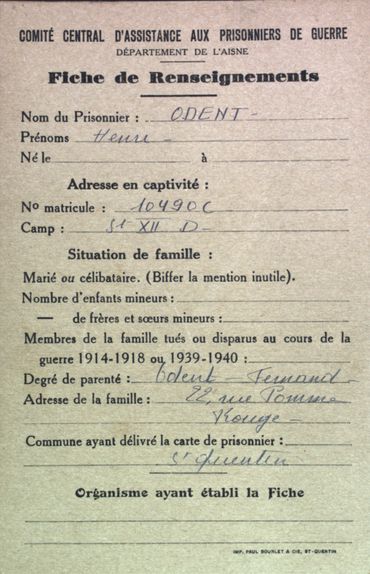 COMITÉ CENTRAL D'ASSISTANCE AUX PRISONNIERS DE GUERRE
DÉPARTEMENT DE L'AISNE
Fiche de Renseignements
Nom du Prisonnier : ODENT -
Prénoms Henri -
Né le à
Adresse en captivité :
No matricule : 10490C
Camp : St XII D -
Situation de famille :
Marié ou célibataire. (Biffer la mention inutile).
Nombre d'enfants mineurs :
— de frères et sœurs mineurs :
Membres de la famille tués ou disparus au cours de la
guerre 1914-1918 ou 1939-1940 :
Degré de parenté : Odent - Fernand -
Adresse de la famille : 22, rue Pomme
Rouge -
Commune ayant délivré la carte de prisonnier :
St Quentin
Organisme ayant établi la Fiche
IMP. PAUL BOURLET & CIE, ST-QUENTIN